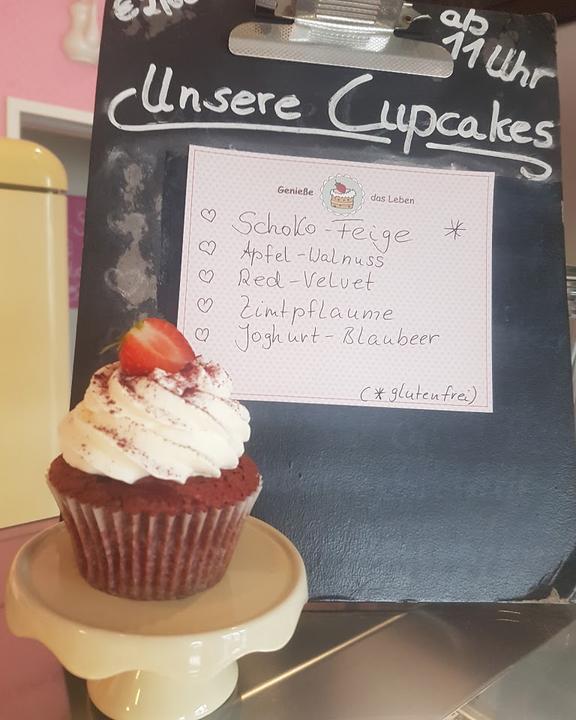 ab
11 Uhr
Unsere Cupcakes
Genieße das Leben
Schoko-Feige *
Apfel-Walnuss
Red-Velvet
Zimtpflaume
Joghurt-Blaubeer
(* glutenfrei)